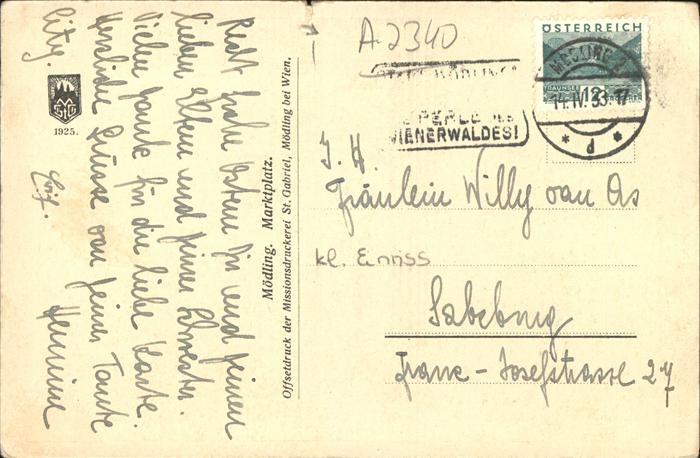 Recht frohe Ostern Dir und Deinen
lieben Eltern und Deiner Schwester.
Vielen Dank für die liebe Karte.
Herzliche Grüsse von Deiner Tante
Hermine
1925.
Mödling. Marktplatz.
Offsetdruck der Missionsdruckerei St. Gabriel, Mödling bei Wien.
A 2340
ÖSTERREICH
12
MÖDLING 1
14.IV.33-17
* d *
PERLE DES
WIENERWALDES!
Fräulein Willy van As
kl. Einriss
Salzburg
Franz-Josefstrasse 27